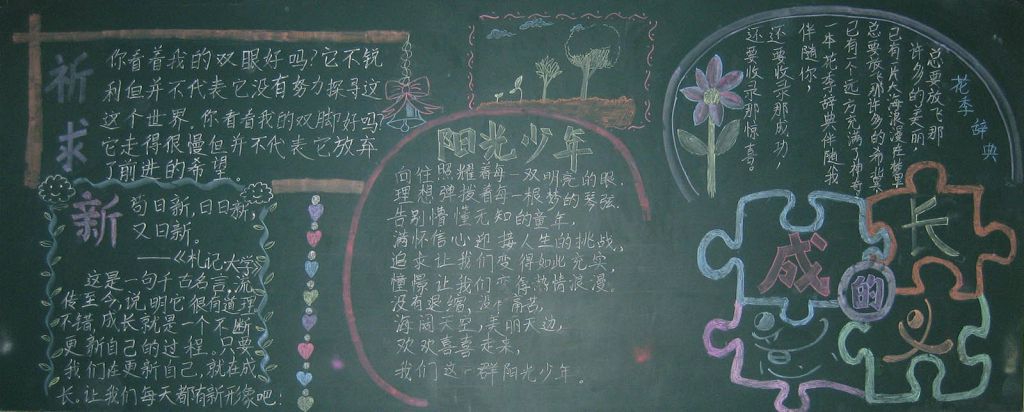 祈求
你看着我的双眼好吗?它不锐
利但并不代表它没有努力探寻这
这个世界.你看看我的双脚好吗?
它走得很慢但并不代表它放弃
了前进的希望。
新
苟日新,日日新,
又日新。
——《礼记·大学》
这是一句千古名言,流
传至今,说明它很有道理
不错,成长就是一个不断
更新自己的过程。只要
我们在更新自己,就在成
长,让我们每天都有新形象吧!
阳光少年
向往照耀着每一双明亮的眼,
理想弹拨着每一根梦的琴弦,
告别懵懂无知的童年,
满怀信心迎接人生的挑战,
追求让我们变得如此充实,
憧憬让我们变得热情浪漫。
没有退缩,没有痛苦,
海阔天空,美丽天边,
欢欢喜喜走来,
我们这一群阳光少年。
花季辞典
总要放飞那
许多的美丽
已有一片大海浪漫在胸里
总要放飞那许多的希冀
已有一个远方充满了神奇
一本花季辞典伴随我
伴随你,
还要收录那成功,
还要收录那惊喜。
成长的
义